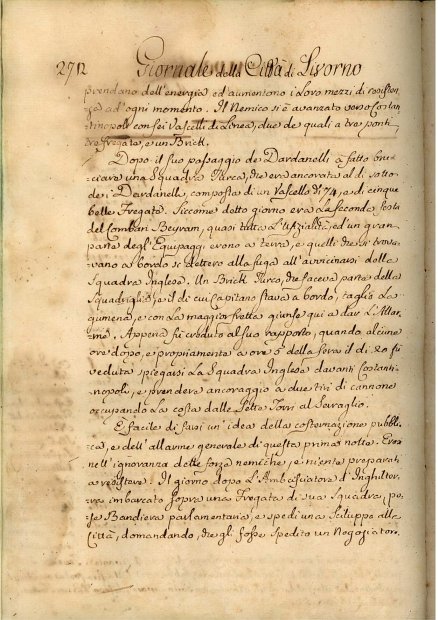 272 Giornale della Città di Livorno
prendano dell'energia ed aumentono i loro mezzi di resisten-
za ad ogni momento. Il Nemico si è avanzato verso Costan
tinopoli con sei Vascelli di Linea, due de quali a tre ponti
tre Fregate, e un Brick.
Dopo il suo passaggio de Dardanelli à fatto bru-
ciare una Squadra Turca, che era ancorata al di sotto
de i Dardanelli, composta di un Vascello di 74, e di cinque
belle Fregate. Siccome detto giorno era la seconda festa
del Corban Beyram, quasi tutta l'Ufizialità, ed un gran
parte degl'Equipaggi erono a terra, e quelli che si trova-
vano a bordo si dettero alla fuga all'avvicinarsi della
Squadra Inglese. Un Brick Turco, che faceva parte della
Squadriglia, e il di cui Capitano stava a bordo, tagliò la
gumena, e con la maggior fretta giunse qui a dar l'Allar-
me. Appena fù creduto al suo rapporto, quando alcune
ore dopo, e propriamente a ore 5 della sera il dì 20 fù
veduta spiegarsi la Squadra Inglese davanti Costanti-
nopoli, e prendere ancoraggio a due tiri di cannone
occupando la costa dalle Sette Torri al Serraglio.
È facile di farsi un'idea della costernazione pubbli-
ca, e dell'allarme generale di questa prima notte. Eran
nell'ignoranza delle forze nemiche, e niente preparati
a resistere. Il giorno dopo l'Ambasciatore d'Inghilter-
ra imbarcato sopra una Fregata di sua Squadra, po-
se Bandiera parlamentaria, e spedì una Scialuppa alla
Città, domandando, che gli fosse spedito un Negoziatore.